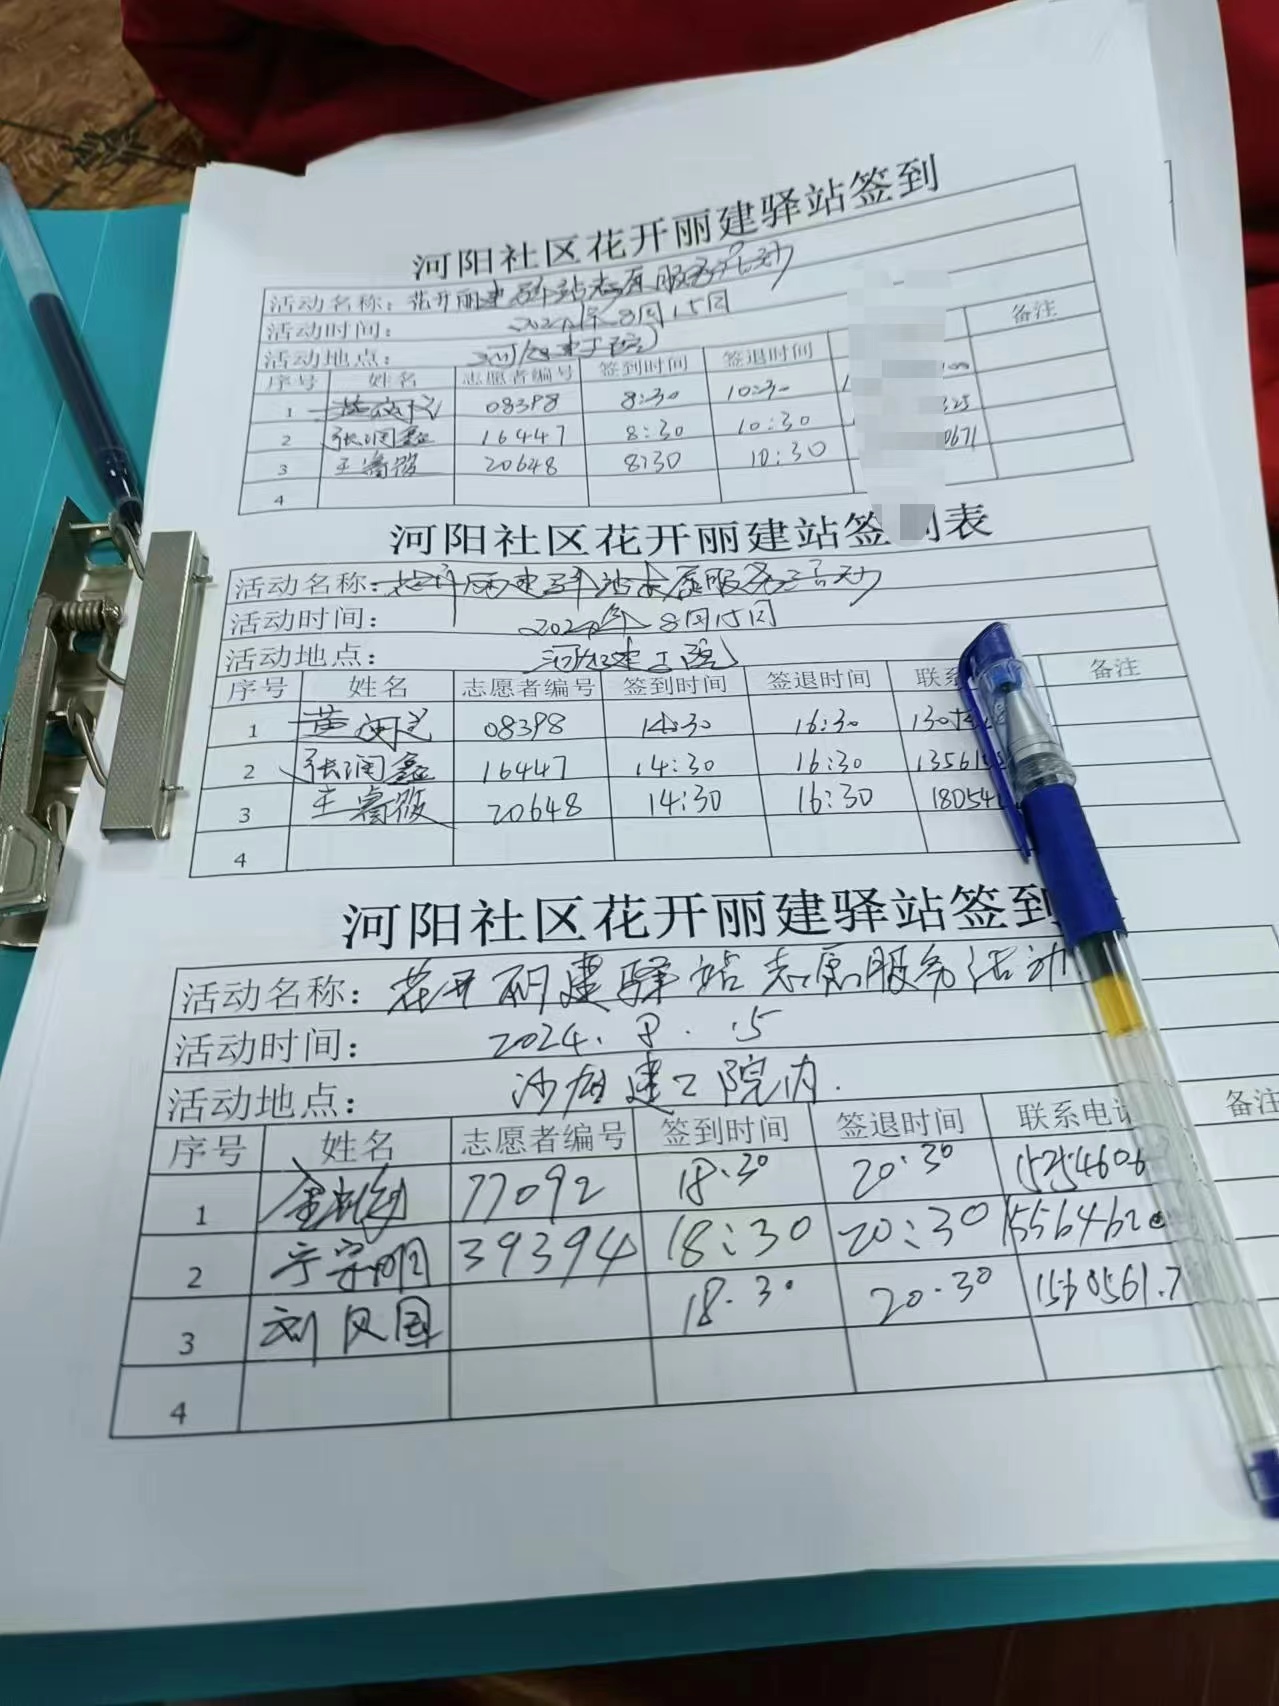 河阳社区花开丽建驿站签到
活动名称：花开丽建驿站志愿服务活动
活动时间： 2024年8月15日
活动地点：
序号 姓名 志愿者编号 签到时间 签退时间 备注
1 08398 8:30 10:30
2 张润鑫 16447 8:30 10:30 0671
3 王 20648 8:30 10:30
4
河阳社区花开丽建站签 表
活动名称：花开丽建驿站志愿服务活动
活动时间： 2024年8月15日
活动地点： 建工院
序号 姓名 志愿者编号 签到时间 签退时间 联系 备注
1 08398 14:30 16:30 130
2 张润鑫 16447 14:30 16:30 13561
3 王 20648 14:30 16:30 18054
4
河阳社区花开丽建驿站签到
活动名称：花开丽建驿站志愿服务活动
活动时间： 2024.8.15
活动地点： 建工院内.
序号 姓名 志愿者编号 签到时间 签退时间 联系电话 备注
1 77092 18:30 20:30 15254606
2 39394 18:30 20:30 15564620
3 刘 国 18.30 20.30 1560561.7
4